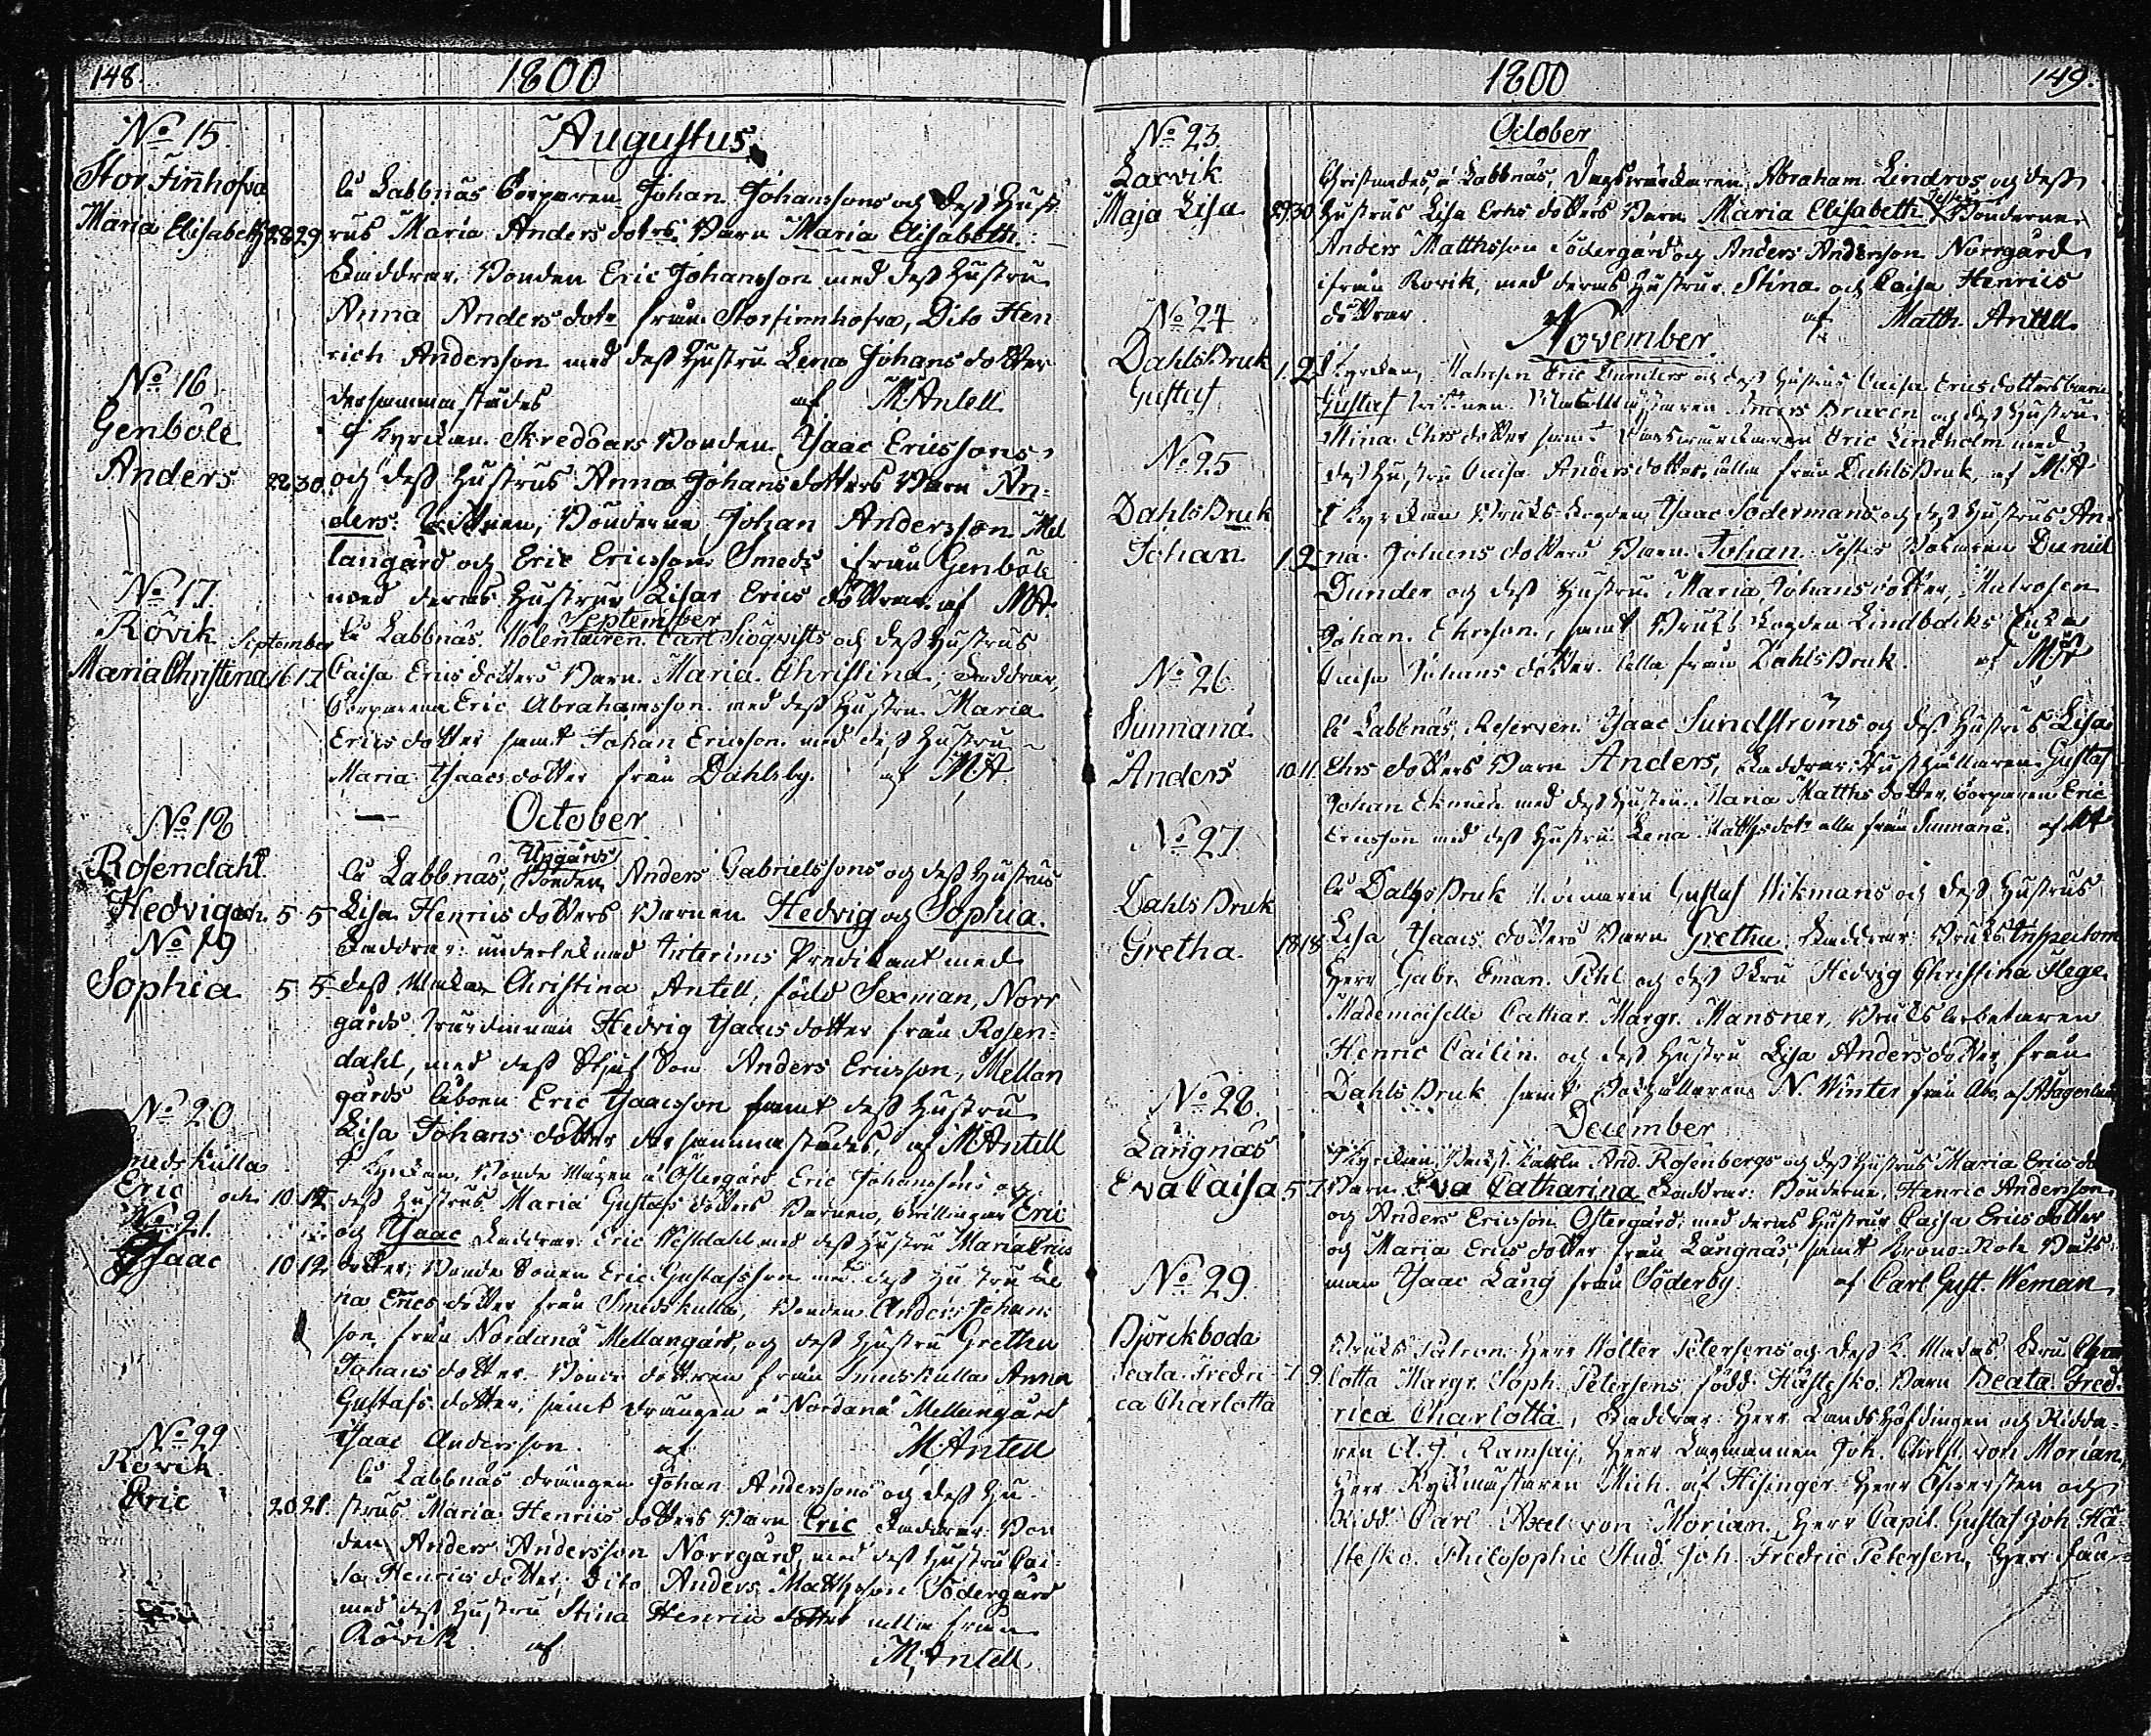 148.
1800
No 15.
Stor Finnhofva
Maria Elisabeth 28 29
Augustus
å Labbnäs Corporen Johan Johanssons och dess Hust
rus Maria Anders dotrs Barn Maria Elisabeth.
Faddrar. Bonden Eric Johansson med dess Hustru
Anna Anders dotr från Storfinnhofva, Dito Hen
rich Andersson med dess Hustru Lena Johans dotter
dersammastädes af M Antell
No 16
Genböle
Anders 30.
I Kyrckan Skreddars Bonden Isaac Ericssons
och dess Hustrus Anna Johans dotters Barn An-
ders: Vittnen, Bönderne Johan Andersson Mel
langård och Eric Ericsson Smeds ifrån Genböle
med deras Hustrur Lisar Erics döttrar. af MA.
No 17.
Rövik September
Maria Christina 16 17
September
å Labbnäs. Volontairen Carl Siöqvists och dess Hustrus
Caisa Erics dotters Barn. Maria Christina; Faddrar,
Corporen Eric Abrahamsson med dess Hustru Maria
Erics dotter samt Johan Ericsson med dess Hustru
Maria Isaacs dotter från Dahlsby. af MA
October
No 18
Rosendahl
Hedvig och 5 5
No 19
Sophia 5 5
Upgårds
å Labbnäs, Bonden Anders Gabrielssons och dess Hustrus
Lisa Henrics dotters Barnen Hedvig och Sophia.
Faddrar: undertecknad Interims Predikant med
dess Maka Christina Antell, född Sexman, Norr
gårds Hedvig Isaacs dotter från Rosen-
dahl, med dess Stjuf Son Anders Ericsson, Mellan
gårds åboen Eric Isaacsson samt dess Hustru
Lisa Johans dotter dersammastädes, af M Antell
No 20
Smedskulla
Eric och 10 12
No 21.
Isaac 10 12
I Kyrckan, Bonde Magen å Östergård Eric Johanssons och
dess Hustrus Maria Gustafs dotters Barnen, tvillingar Eric
och Isaac Faddrar: Eric Westdahl med dess Hustru Maria Erics
dotter, Bonde Sonen Eric Gustafsson med dess Hustru
na Erics dotter från Smedskulla, Bonden Anders Johans
son från Nordanå Mellangård, och dess Hustru Gretha
Johans dotter. Bonde dottren från Smedskulla Anna
Gustafs dotter, samt drängen å Nordanå Mellangård
Isaac Andersson. af M Antell
No 22
Rövik.
Eric 20 21.
å Labbnäs drängen Johan Anderssons och dess Hu
strus Maria Henrics dotters Barn Eric Faddrar: Bon
den Anders Andersson Norrgård, med dess Hustru Cai-
sa Henrics dotter, Dito Anders Matthsson Södergård
med dess Hustru Stina Henrics dotter alla från
Rövik. af M. Antell.
1800
149.
October
No 23.
Laxvik
Maja Lisa 29 30
Christnades å Labbnäs, Dagsverckaren Abraham Lindros och dess
Hustrus Lisa Erics dotters Barn Maria Elisabeth Bönderne
Anders Matthsson Södergård och Anders Andersson Norrgård
ifrån Rövik, med deras Hustrur Stina och Caisa Henrics
döttrar. af Matth. Antell
November
No 24
Dahls Bruk
Gustaf 1. 2
I Kyrckan, Eric Dunders och dess Hustrus Caisa Erics dotters barn
Gustaf Vittnen och dess Hustru
Stina Ers dotter samt Eric Lindholm med
dess Hustru Caisa Anders dotter, alla från Dahls Bruk, af MA
No 25
Dahls Bruk
Johan 1. 2
I Kyrckan Bruks Isaac Södermans och dess Hustrus An-
na Johans dotters Barn Johan. Daniel
Dunder och dess Hustru Maria Johans dotter,
Johan samt Bruks Lindbäcks Enka
Caisa Johans dotter. alla från Dahls Bruk. af MA
No 26.
Sunnanå
Anders 10 11.
å Labbnäs, Reserven Isaac Sundströms och dess Hustrus Lisa
Ers dotters Barn Anders, Faddrar: Gustaf
Johan Ekman med dess Hustru Maria Matths dotter, Corporen Eric
Ericsson med dess Hustru Lena Matths dotr alla från Sunnanå. af MA
No 27
Dahls Bruk
Gretha 18 18
å Dahls Bruk Gustaf Wikmans och dess Hustrus
Lisa Isaacs dotters Barn Gretha. Faddrar: Bruks Inspectoren
Herr Gabr. Eman. Pihl och dess Fru Hedvig Christina Hege.
Mademoiselle Cathar. Margr. Mansner, Bruks arbetaren
Henric Cailin och dess Hustru Lisa Anders dotter från
Dahls Bruk samt Bokhållaren N. Winter från Åbo,
December
No 28.
Långnäs
Eva Caisa 5 7
I Kyrckan And. Rosenbergs och dess Hustrus Maria Erics
Barn Eva Catharina Faddrar: Bönderne, Henric Andersson
och Anders Ericsson Östergård, med deras Hustrur Caisa Erics dotter
och Maria Erics dotter från Långnäs, samt Krono-Rote Båts-
man Isaac Lång från Söderby. af Carl Gust. Weman
No 29.
Björckboda
Beata Fredri 7 9
ca Charlotta
Bruks Patron Herr Wolter Petersens och dess K. Makas Fru Char
lotta Margr. Soph. Petersens född Hästesko. Barn Beata Fred-
rica Charlotta, Faddrar: Herr Landshöfdingen och Ridda-
ren A. J. Ramsay, Herr Lagmannen Joh. Christ. von Morian,
Herr Ryttmästaren Mich. af Hisinger. Herr Öfwersten och
Ridd. Carl Axel von Morian. Herr Capit. Gustaf Joh. Hä-
stesko. Philosophie Stud. Joh. Fredric Petersen, Herr